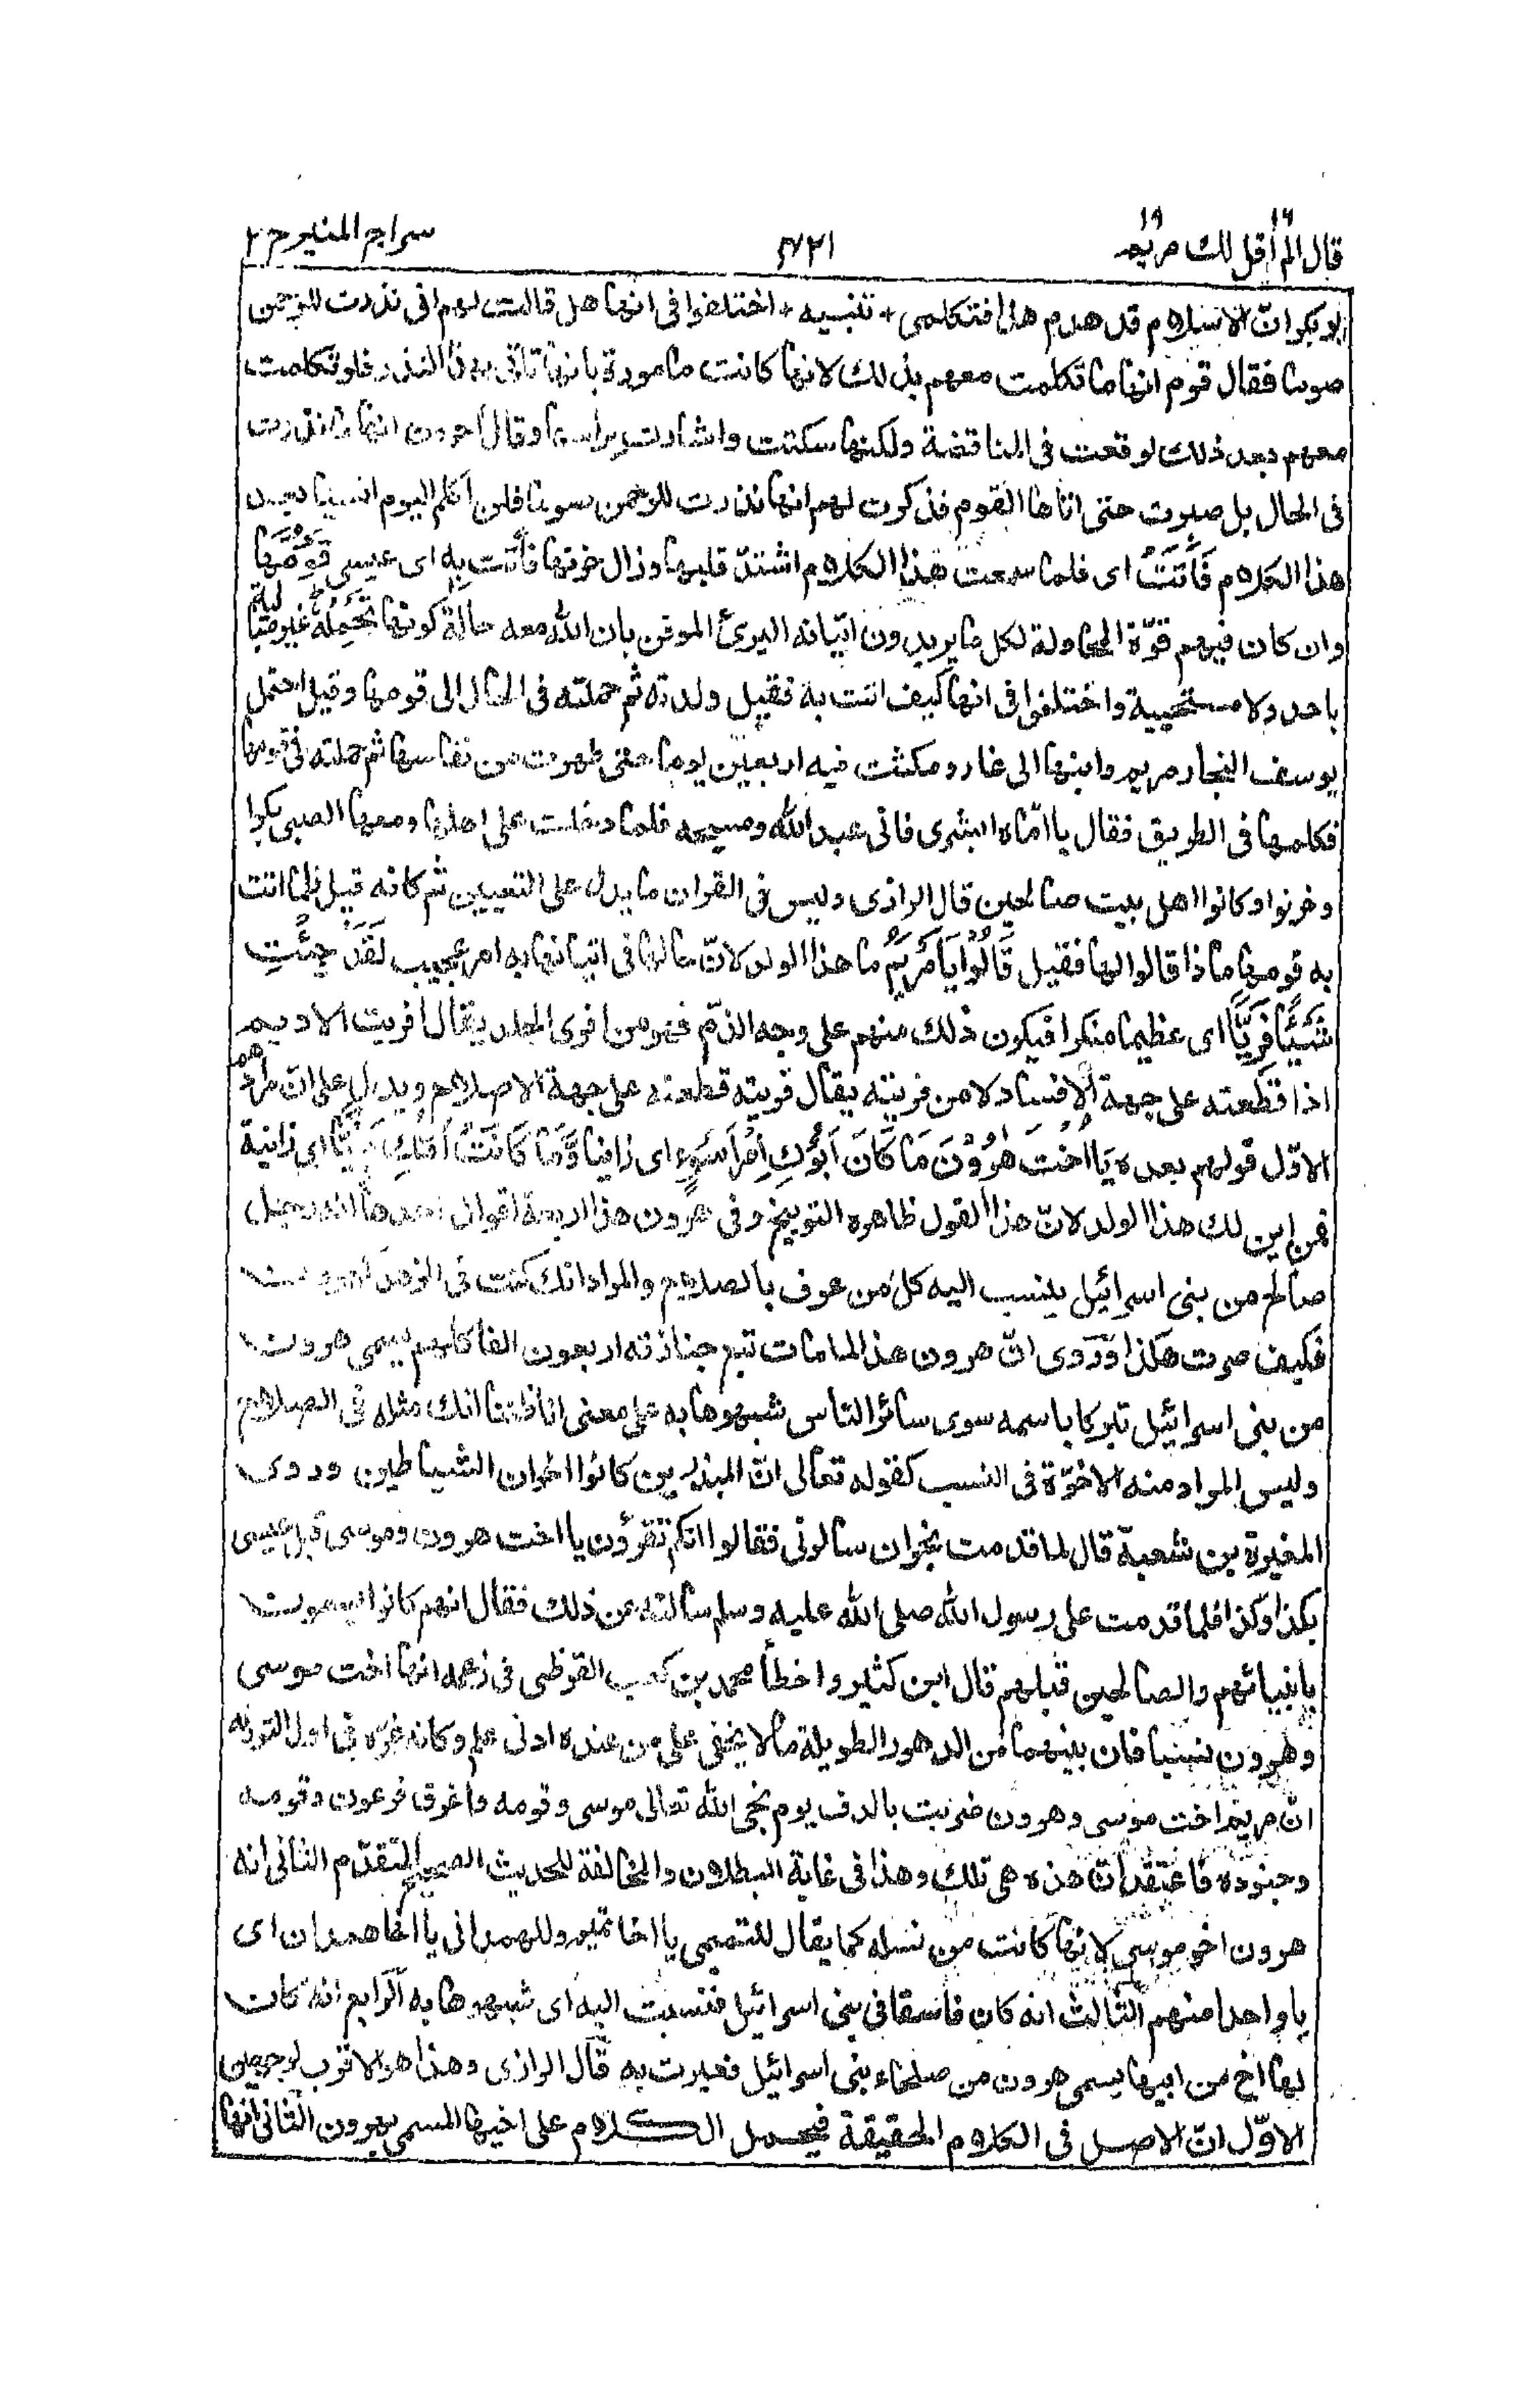 قال الم اقل لك ١٦ مريم ١٩
٧٢١
سراج المنير ج ٢
ابو بكر انّ الاسلام قد هدم هذا فتكلمى + تنبيه + اختلفوا فى انها هل قالت لهم انى نذرت للرحمن
صوما فقال قوم انها ما تكلمت معهم بذلك لانها كانت مامورة بانها تاتى بهذا النذر فلو تكلمت
معهم بعد ذلك لوقعت فى المناقضة ولكنها سكتت واشارت براسها وقال اخرون انها ما نذرت
فى الحال بل صبرت حتى اتاها القوم فذكرت لهم انها نذرت للرحمن صوما فلن اكلم اليوم انسيا بعد
هذا الكلام فَأَتَتْ اى فلما سمعت هذا الكلام اشتدّ قلبها وزال حزنها فأتت بِه اى عيسى قَوْمَهَا
وان كان فيهم قوّة المحاولة لكل ما يريدون اتيانه البرئ الموقن بان الله معه حالة كونها تَحْمِلُهُ غير مبالية
باحد ولا مستحيية واختلفوا فى انها كيف اتت به فقيل ولدته ثم حملته فى الحال الى قومها وقيل احتمل
يوسف النجار مريم وابنها الى غار ومكثت فيه اربعين يوما حتى طهرت من نفاسها ثم حملته الى قومها
فكلمها فى الطريق فقال يا امّاه ابشرى فانى عبد الله ومسيحه فلما دخلت على اهلها ومعها الصبى بكوا
وحزنوا وكانوا اهل بيت صالحين قال الرازى وليس فى القران ما يدل على التعيين ثم كانه قيل فلما اتت
به قومها ماذا قالوا لها فقيل قَالُوْا يَا مَرْيَمُ ما هذا الولد لانّ حالها فى اتيانها به امر عجيب لَقَدْ جِئْتِ
شَيْئًا فَرِيًّا اى عظيما منكرا فيكون ذلك منهم على وجه الذمّ فهو من افرى الجلد يقال افريت الاديم
اذا قطعته على جهة الافساد لا من فريته يقال فريته قطعته على جهة الاصلاح ويدل على انّ مرادهم
الاوّل قولهم بعده يَا اُخْتَ هٰرُوْنَ مَا كَانَ اَبُوْكِ امْرَاَ سَوْءٍ اى زانيا وَّمَا كَانَتْ اُمُّكِ بَغِيًّا اى زانية
فمن اين لك هذا الولد لانّ هذا القول ظاهره التوبيخ وفى هرون هذا اربعة اقوال احدها انه رجل
صالح من بنى اسرائيل ينسب اليه كل من عرف بالصلاح والمراد انك كنت فى الزهد كهرون
فكيف صرت هكذا وروى انّ هرون هذا لما مات تبع جنازته اربعون الفا كلهم يسمى هرون
من بنى اسرائيل تبركا باسمه سوى سائر الناس شبهوها به على معنى انا ظننا انك مثله فى الصلاح
وليس المراد منه الاخوّة فى النسب كقوله تعالى انّ المبذرين كانوا اخوان الشياطين وروى
المغيرة بن شعبة قال لما قدمت نجران سالونى فقالوا انكم تقرؤن يا اخت هرون وموسى قبل عيسى
بكذا وكذا فلما قدمت على رسول الله صلى الله عليه وسلم سالته عن ذلك فقال انهم كانوا يسمون
بانبيائهم والصالحين قبلهم قال ابن كثير واخطأ محمد بن كعب القرظى فى زعمه انها اخت موسى
وهرون نسبا فان بينهما من الدهور الطويلة ما لا يخفى على من عنده ادنى علم وكانه غرّه فى اول التورٰة
انّ مريم اخت موسى وهرون ضربت بالدف يوم نجى الله تعالى موسى وقومه واغرق فرعون وقومه
وجنوده فاعتقد انّ هذه هى تلك وهذا فى غاية البطلان والمخالفة للحديث الصحيح المتقدّم الثانى انه
هرون اخو موسى لانها كانت من نسله كما يقال للتميمى يا اخا تميم وللهمدانى يا اخا همدان اى
يا واحدا منهم الثالث انه كان فاسقا فى بنى اسرائيل فنسبت اليه اى شبهوها به الرابع انه كان
لها اخ من ابيها يسمى هرون من صلحاء بنى اسرائيل فعيرت به قال الرازى وهذا هو الاقرب لوجهين
الاوّل انّ الاصل فى الكلام الحقيقة فيحمل الكلام على اخيها المسمى بهرون الثانى انها